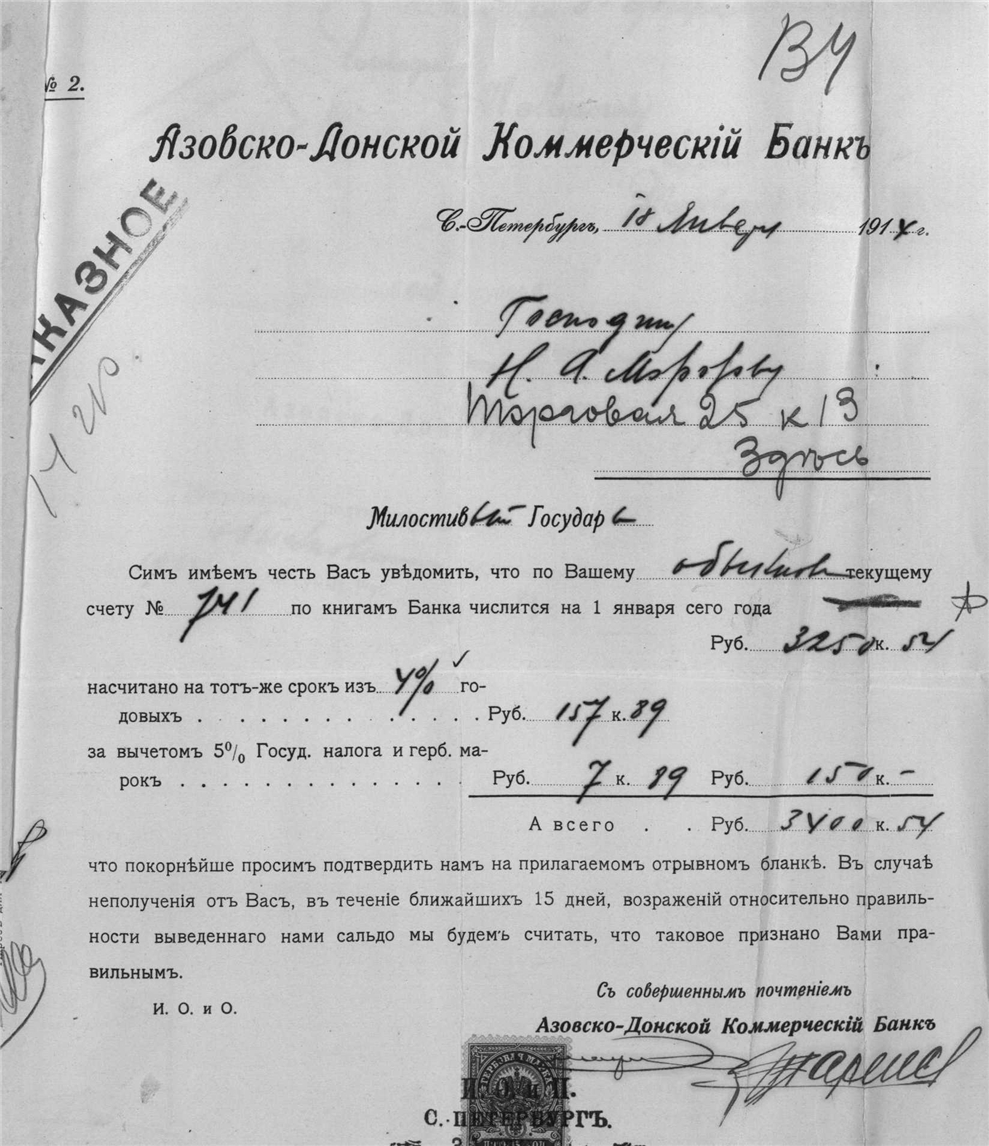 В4
№ 2.
Азовско-Донской Коммерческій Банкъ
С.-Петербургъ, 18 Января 1914 г.
КАЗНОЕ
Господину
Н. А. Морозову
Торговая 25 к 13
Здѣсь
Милостивый Государь
Симъ имѣемъ честь Васъ увѣдомить, что по Вашему обыкнов текущему
счету № 741 по книгамъ Банка числится на 1 января сего года
Руб. 3250 к. 54
насчитано на тотъ-же срокъ изъ 4% го-
довыхъ . . . . . . . . . . . . Руб. 157 к. 89
за вычетомъ 5% Госуд. налога и герб. ма-
рокъ . . . . . . . . . . . . . Руб. 7 к. 89 Руб. 150 к. -
А всего . . Руб. 3400 к. 54
что покорнѣйше просимъ подтвердить намъ на прилагаемомъ отрывномъ бланкѣ. Въ случаѣ
неполученія отъ Васъ, въ теченіе ближайшихъ 15 дней, возраженій относительно правиль-
ности выведеннаго нами сальдо мы будемъ считать, что таковое признано Вами пра-
вильнымъ.
Съ совершеннымъ почтеніемъ
И. О. и О.
Азовско-Донской Коммерческій Банкъ
ГЕРБОВАЯ МАРКА
И. О. и П.
С.-ПЕТЕРБУРГЪ.